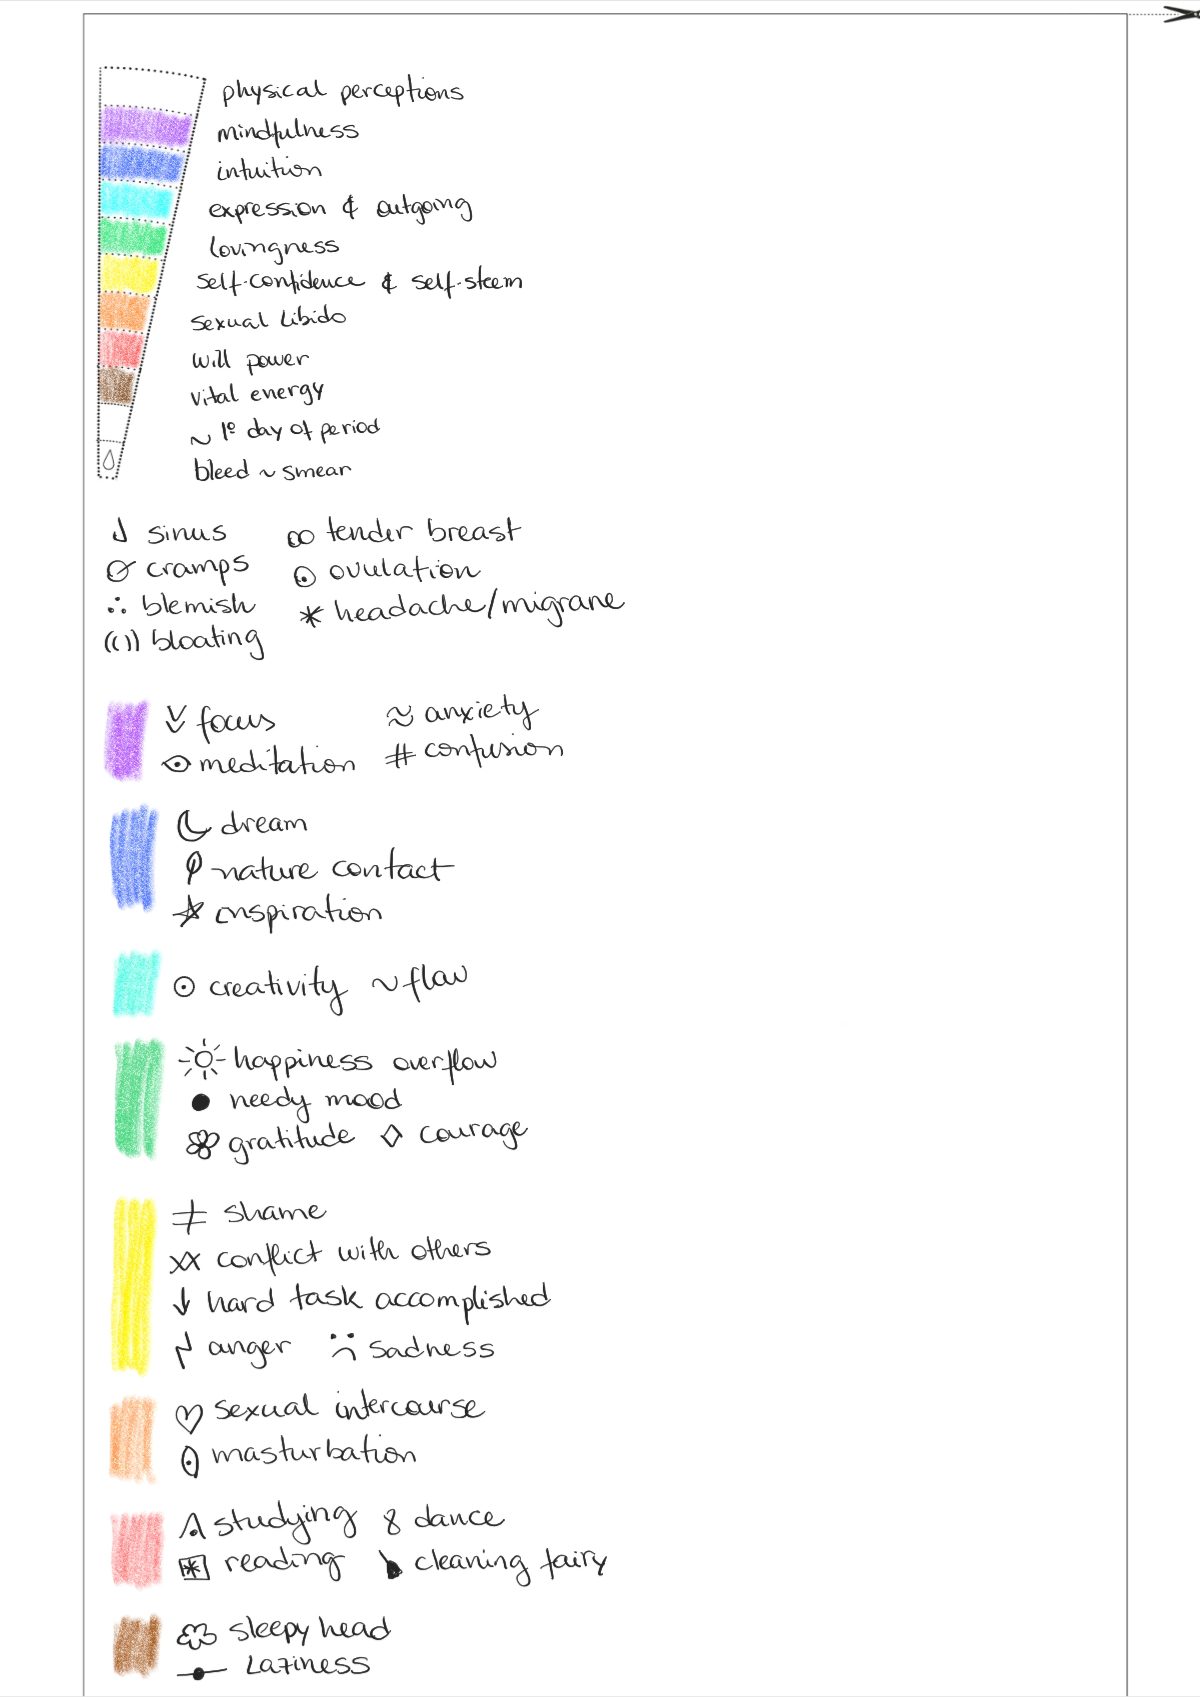 physical perceptions
mindfulness
intuition
expression & outgoing
lovingness
self-confidence & self-steem
sexual libido
will power
vital energy
~ 1º day of period
bleed ~ smear
sinus
tender breast
cramps
ovulation
blemish
headache/migrane
bloating
focus
anxiety
meditation
# confusion
dream
nature contact
inspiration
creativity ~ flow
happiness overflow
needy mood
gratitude
courage
shame
conflict with others
hard task accomplished
anger
sadness
sexual intercourse
masturbation
studying
dance
reading
cleaning fairy
sleepy head
Laziness